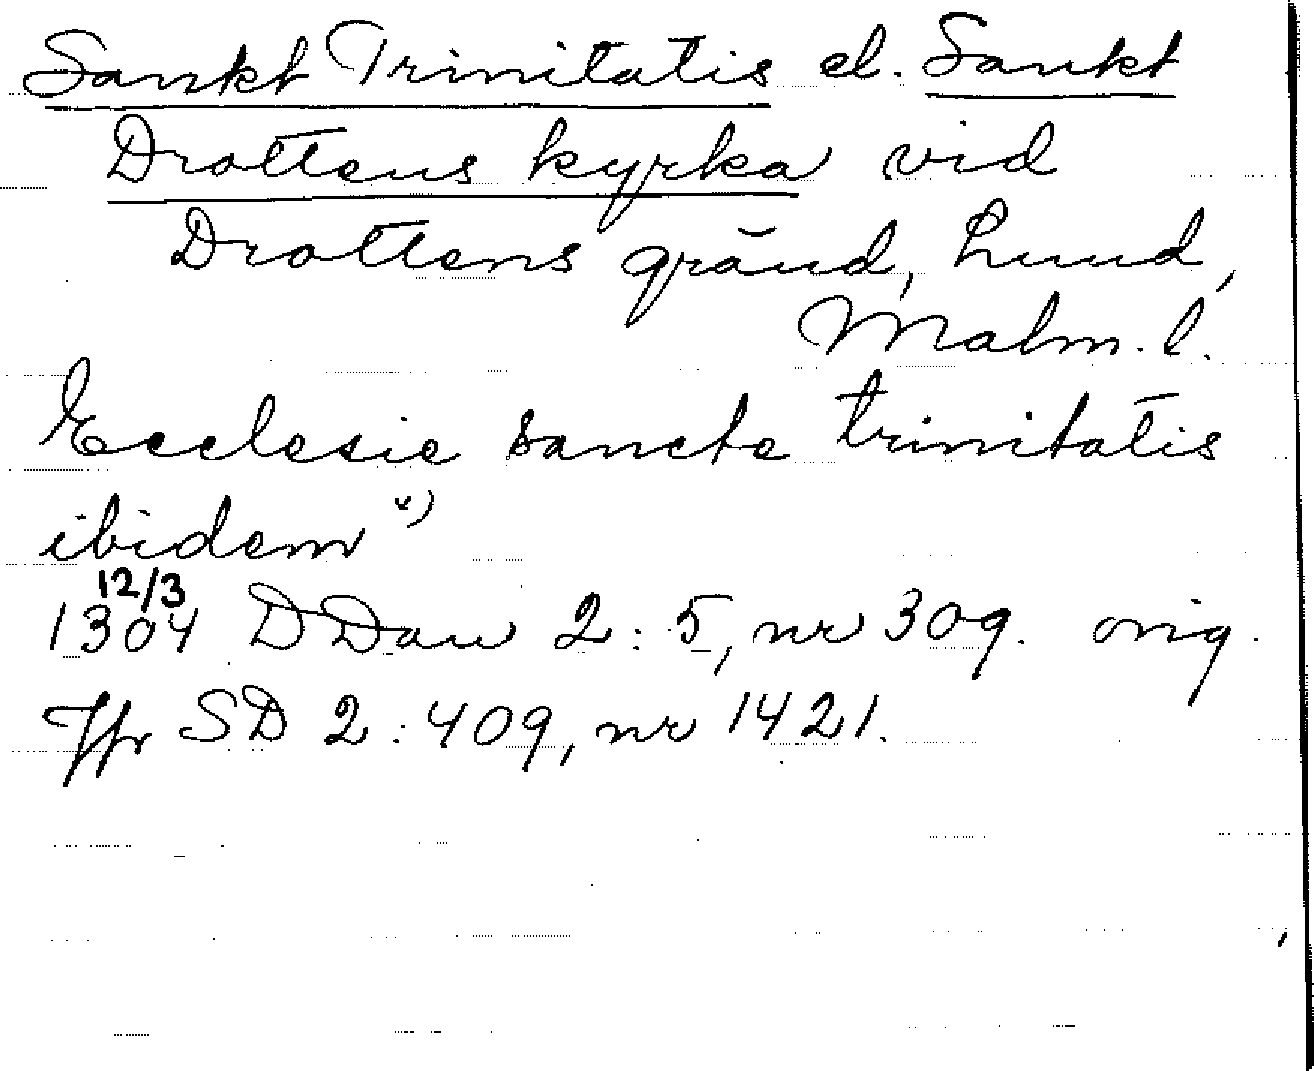 Sankt Trinitatis el. Sankt
Drottens kyrka vid
Drottens gränd, Lund,
Malm. l.
Ecclesie sancte trinitatis
ibidem x)
12/3
1304 DDan 2:5, nr 309. orig.
Jfr SD 2:409, nr 1421.